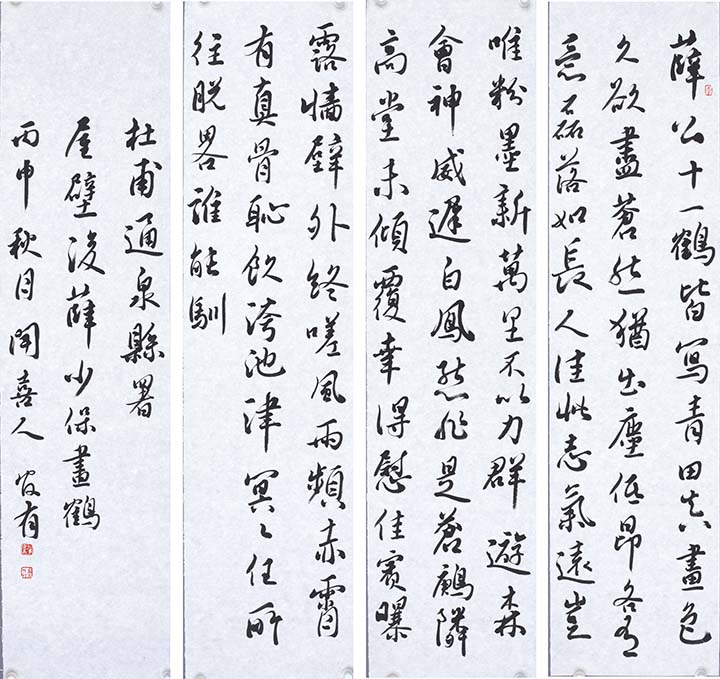 薛公十一鶴皆寫青田真畫色
久欲盡蒼然猶出塵低昂各有
意磊落如長人佳此志氣遠豈
唯粉墨新萬里不以力群遊森
會神威遲白鳳態非是蒼鶊隣
高堂未傾覆幸得慰佳賓曝
露墻壁外終嗟風雨頻赤霄
有真骨恥飲洿池津冥々任所
往脫畧誰能馴
杜甫通泉縣署
屋壁後薛少保畫鶴
丙申秋月聞喜人